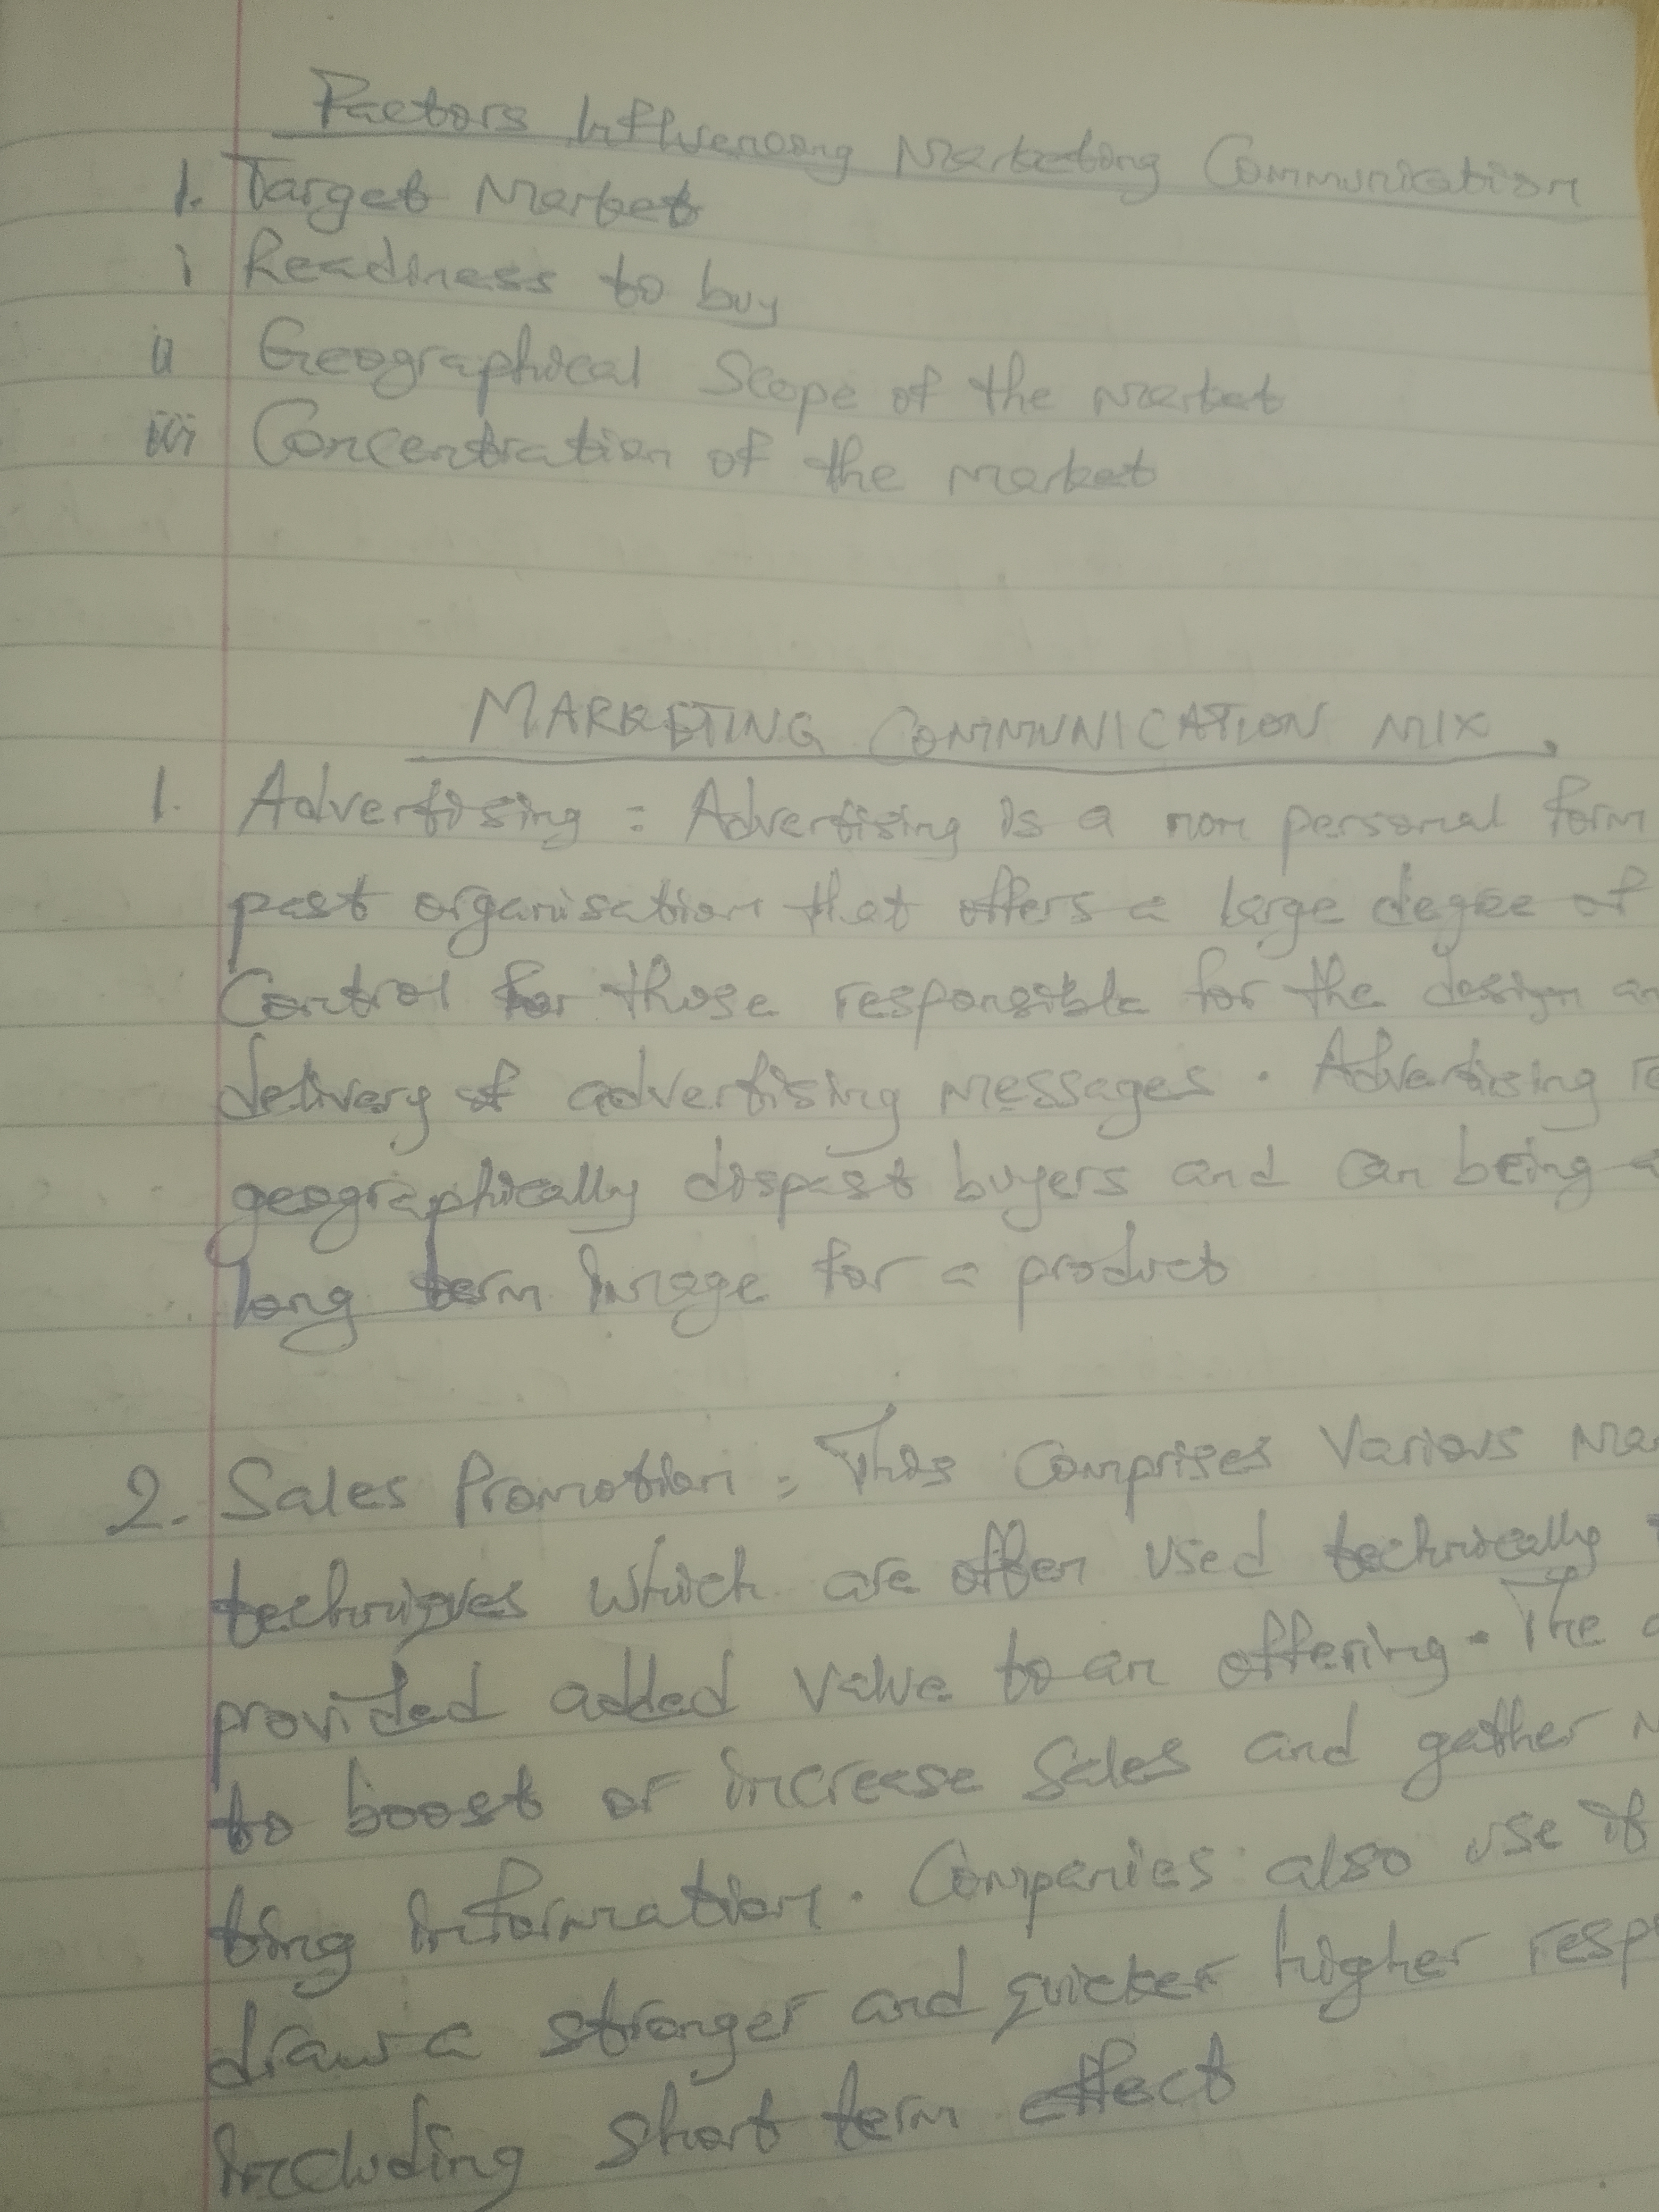 Factors Influencing Marketing Communication
1. Target Market
i Readiness to buy
ii Geographical Scope of the market
iii Concentration of the market
MARKETING COMMUNICATION MIX
1. Advertising = Advertising is a non personal form
past organisation that offers a large degree of
Control for those responsible for the design an
delivery of advertising messages. Advertising re
geographically dispast buyers and can being a
long term image for a product
2. Sales Promotion = This comprises various mar
techniques which are often used technically
provided added value to an offering. The a
to boost or increase sales and gather m
ting information. Companies also use it
draw a stronger and quicker higher resp
including short term effect